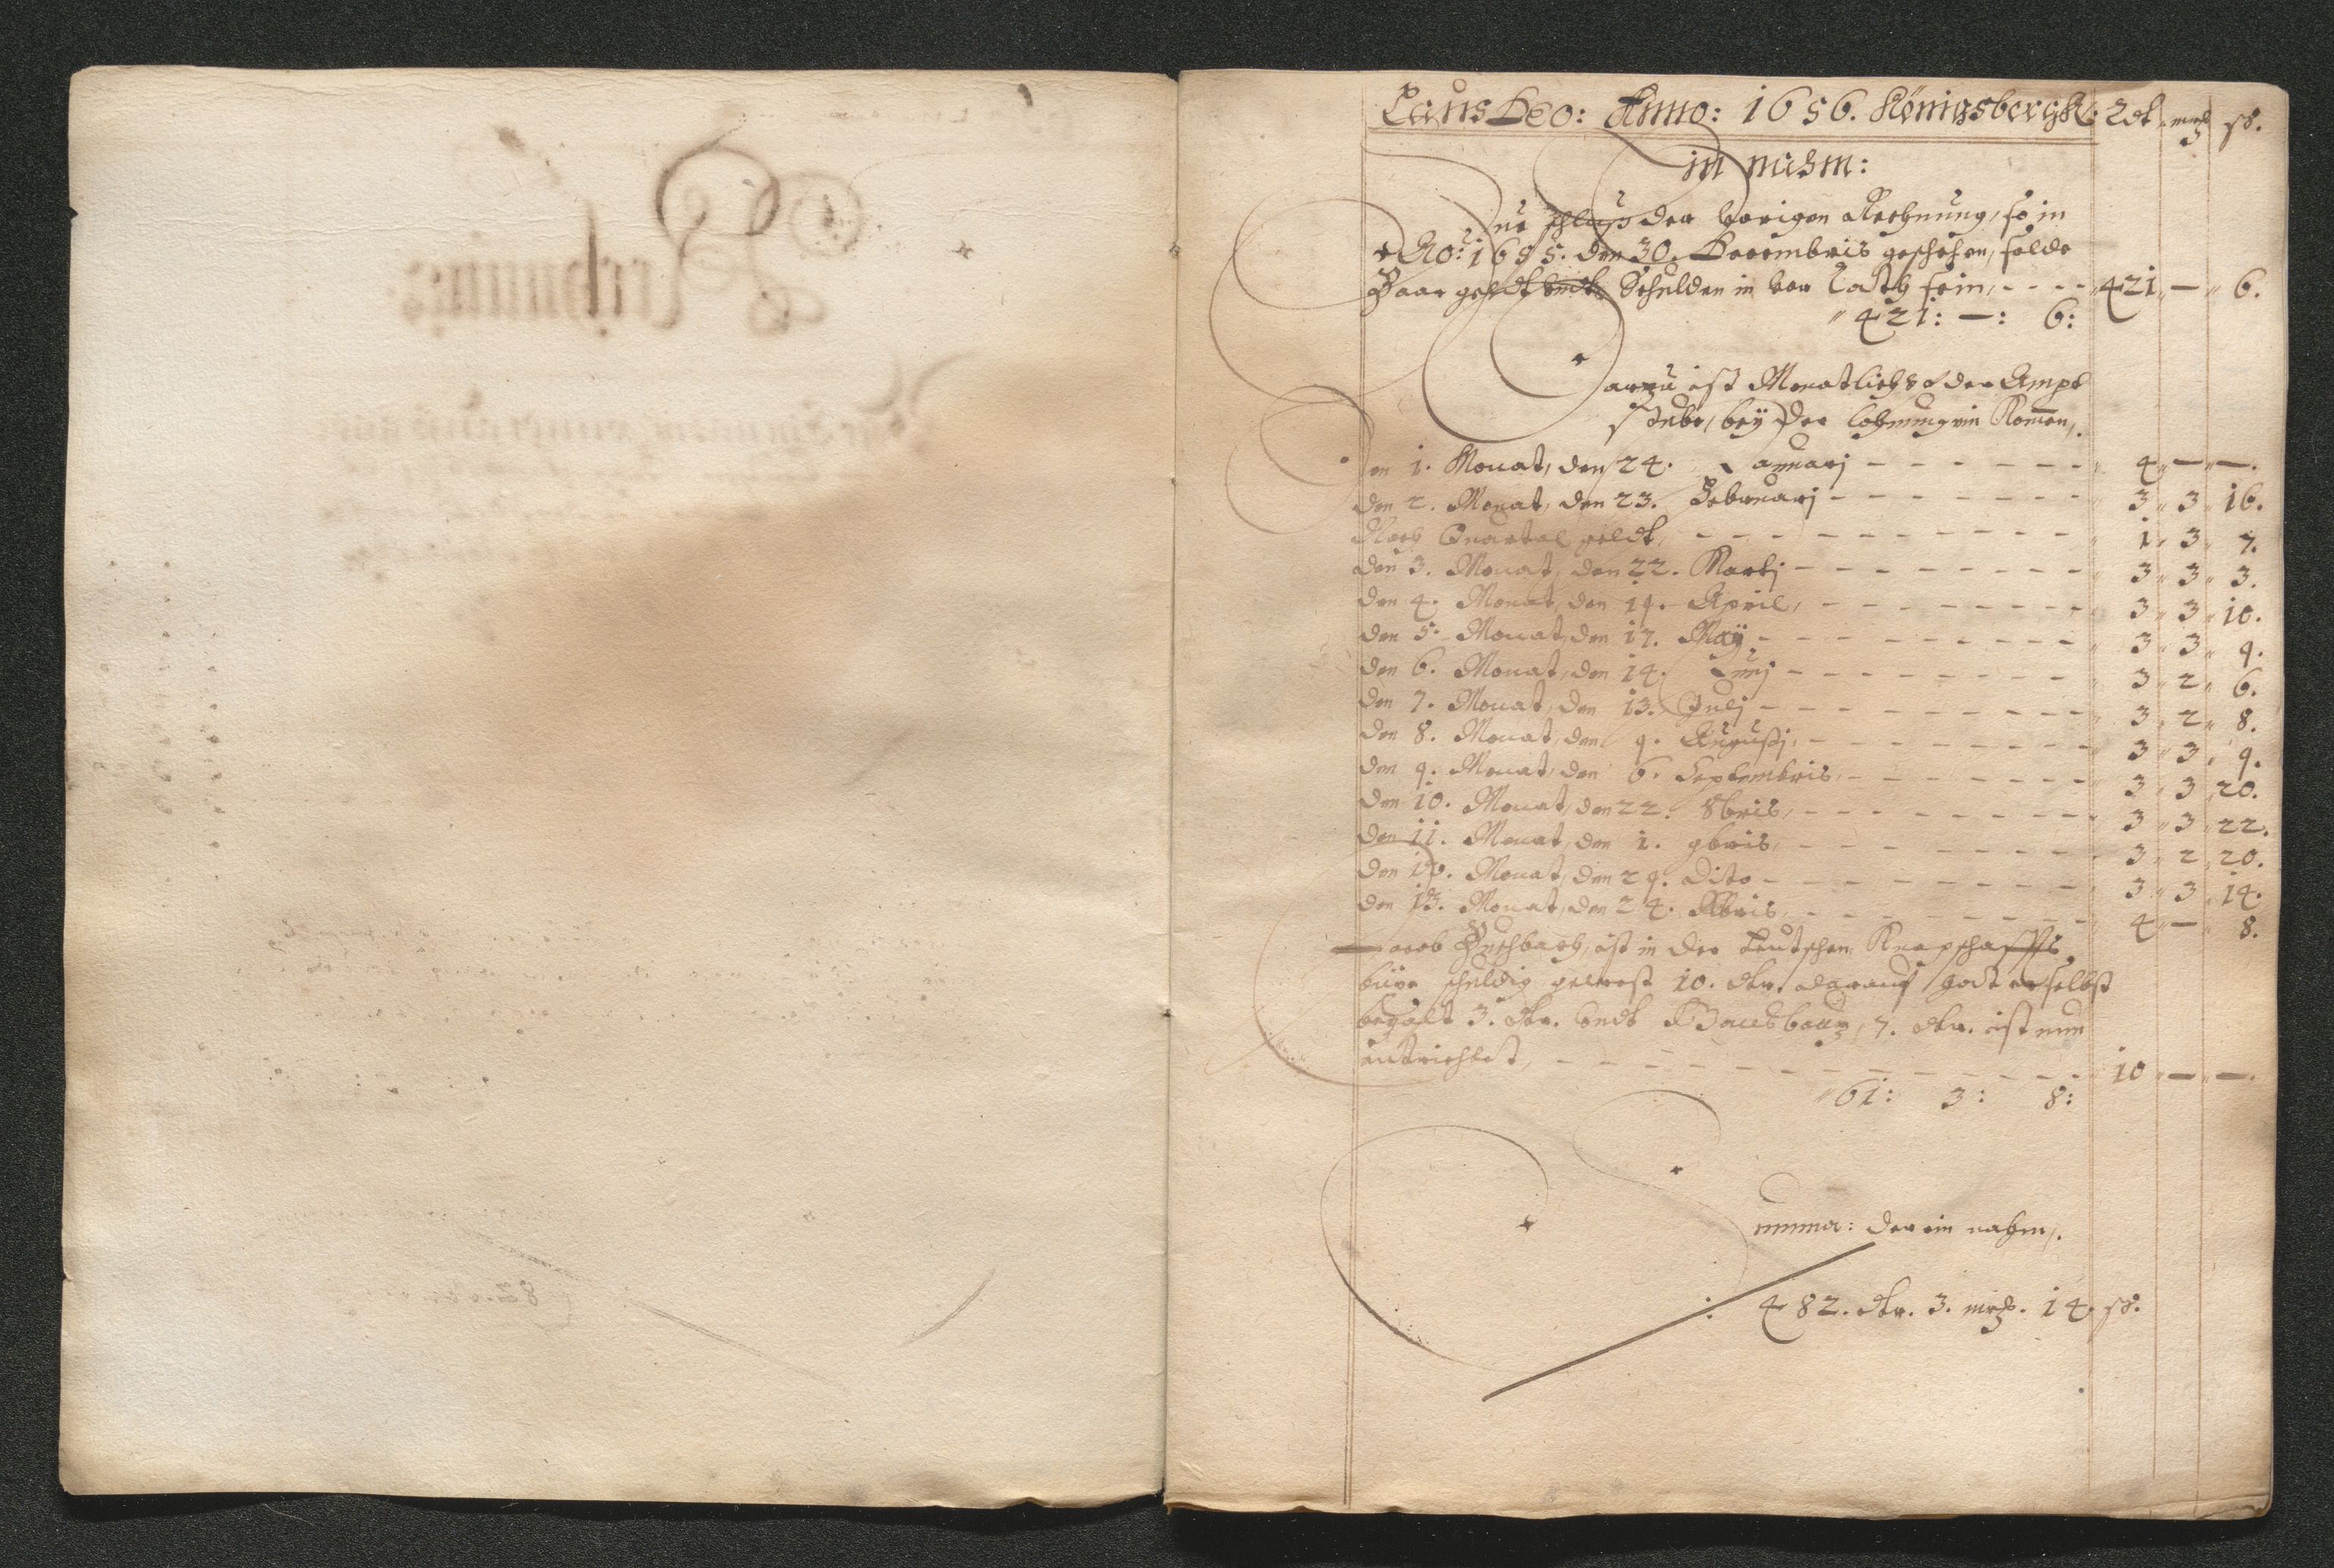 Laus Deo: Anno: 1656. Königsbergk: Rdt mrß ß.
in nahm:
Im schluß der vorigen Rechnung, so in
Ao: 1655. den 30. Decembris geschehen, solde
Baar geldt undt Schulden in vor Lath sein, - - - - 421 — 6.
421: —: 6:
Darzu ist Monatlich der Ampt
stube, bey der lohnung ein Komen,
Den 1. Monat, den 24. Januarj - - - - - - 4 — —.
den 2. Monat, den 23. Februarj - - - - - - - 3 3 16.
Noch Quartal geldt, - - - - - - - - - - 1 3 7.
den 3. Monat, den 22. Martj - - - - - - - - 3 3 3.
den 4. Monat, den 19. April, - - - - - - - - 3 3 10.
den 5. Monat, den 17. Maÿ - - - - - - - - - 3 3 9.
den 6. Monat, den 14. Junj - - - - - - - - 3 2 6.
den 7. Monat, den 13. Julj - - - - - - - - - 3 2 8.
den 8. Monat, den 9. Augustj, - - - - - - - - 3 3 9.
den 9. Monat, den 6. Septembris, - - - - - - - 3 3 20.
den 10. Monat, den 22. 8bris, - - - - - - - - 3 3 22.
den 11. Monat, den 1. 9bris, - - - - - - - - 3 2 20.
den 12. Monat, den 29. Dito - - - - - - - - - 3 3 14.
den 13. Monat, den 24. Xbris, - - - - - - - - 4 — 8.
Jacob ist in der Teutschen Knapschaffts
büxe schuldig gewest 10. dlr. darauf hadt er selbst
bezalt 3. dlr. undt 7. dlr. ist nun
entrichtet, - - - - - - - - - - - - 10 — —.
61: 3: 8:
Summa: der ein nahm,.
: 482. dlr. 3. mrß. 14. ß.